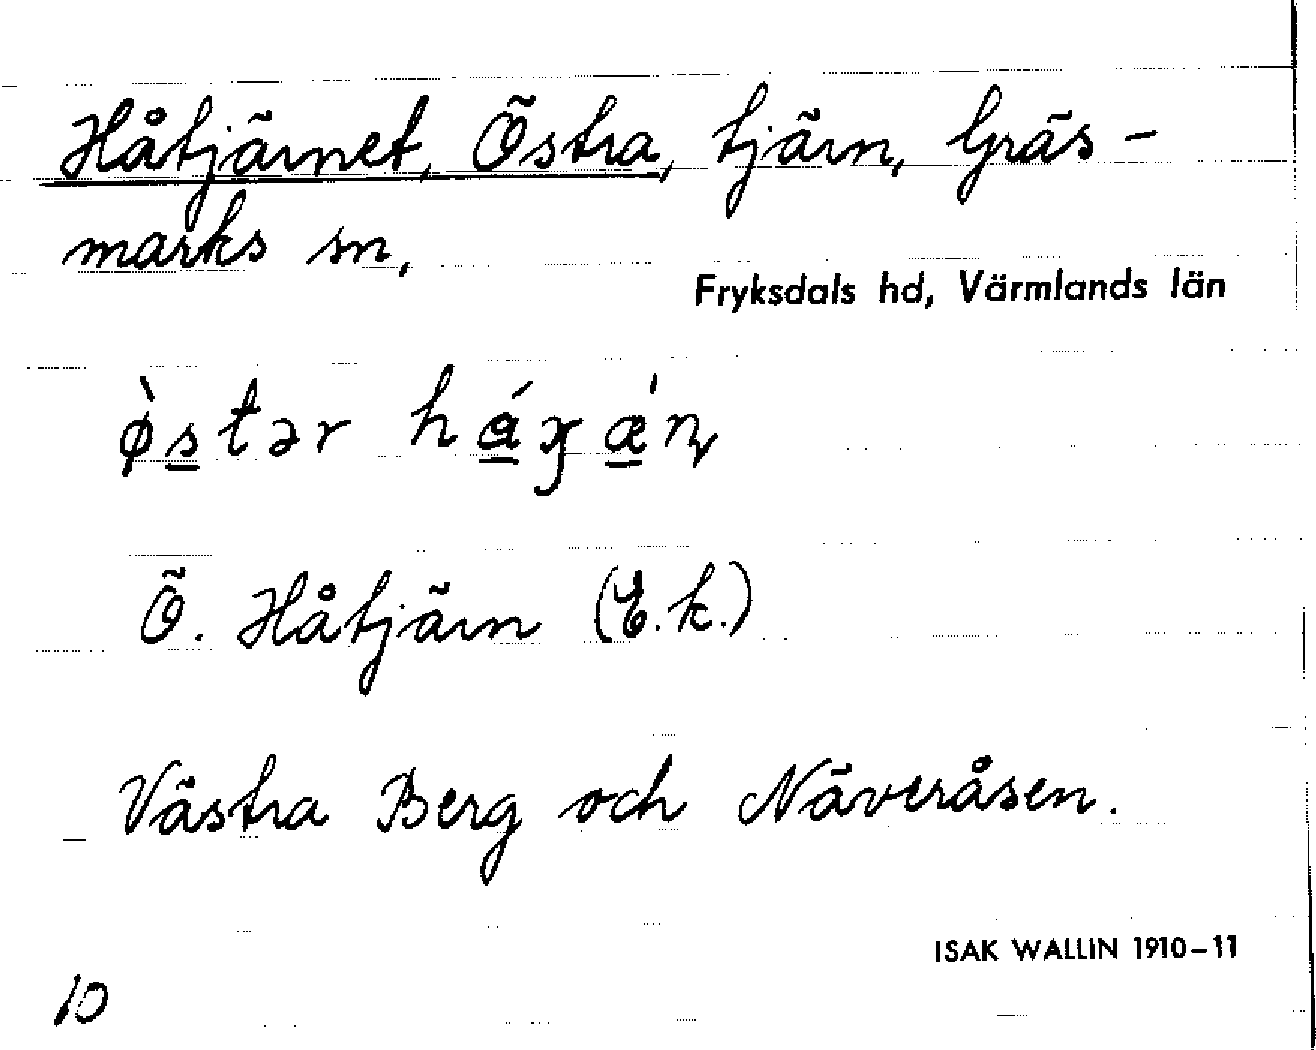 Håtjärnet, Östra, tjärn, Gräs-
marks sn,
Fryksdals hd, Värmlands län
Ö. Håtjärn (E.k.)
Västra Berg och Näveråsen.
ISAK WALLIN 1910–11
10